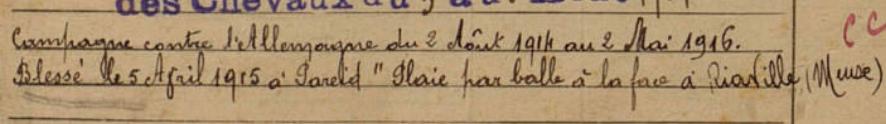 des Chevaux du
Campagne contre l'Allemagne du 2 Août 1914 au 2 Mai 1916.
CC
Blessé le 5 Afril 1915 à Pareid "Plaie par balle à la face à Riaville (Meuse)